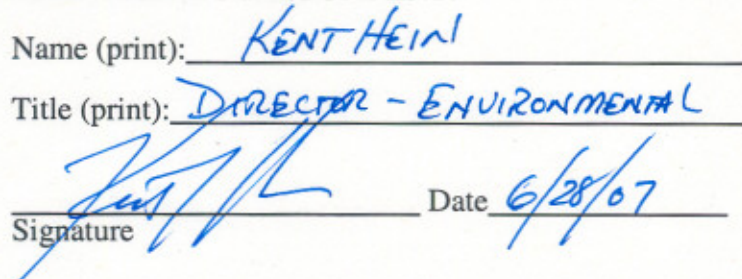 Name (print): KENT HEIN
Title (print): DIRECTOR - ENVIRONMENTAL
Date 6/28/07
Signature